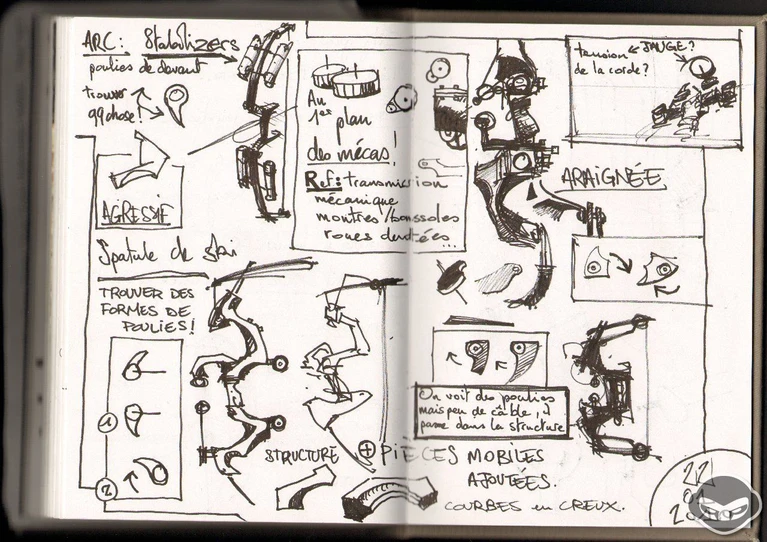 ARC: Stabilizers
poulies de devant
trouver
qqchose!
AGRESSIF
Spatule de ski
TROUVER DES
FORMES DE
POULIES!
1
2
Au
1er plan
des mécas!
Ref: transmission
mécanique
montres/boussoles
roues dentées...
tension ← JAUGE?
de la corde?
ARAIGNÉE
On voit des poulies
mais peu de câble, il
passe dans la structure
STRUCTURE + PIÈCES MOBILES
AJOUTÉES.
COURBES en CREUX.
22